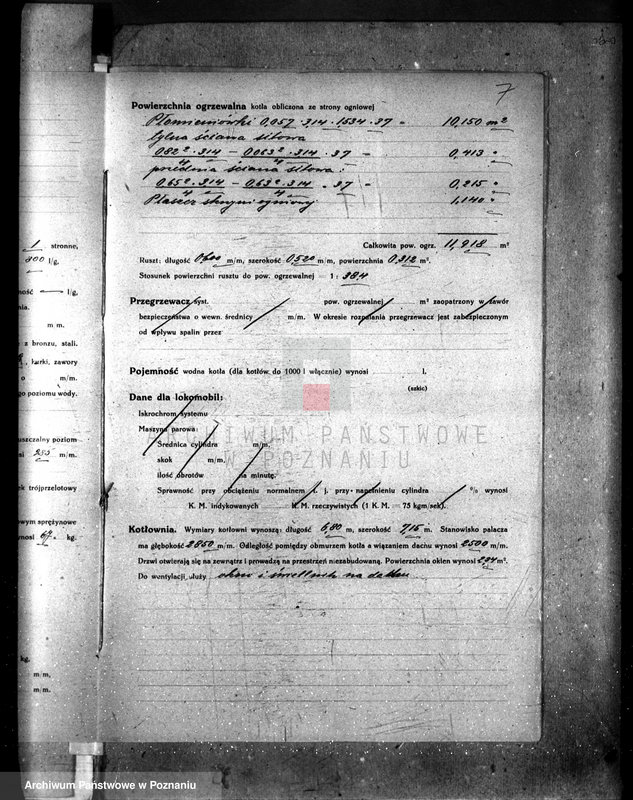 7
Powierzchnia ogrzewalna kotła obliczona ze strony ogniowej
Płomieniówki 0,057 · 3,14 · 1,534 · 37 = 10,150 m²
tylna ściana sitowa
0,82² · 3,14 / 4 − 0,063² · 3,14 / 4 · 37 = 0,413 "
przednia ściana sitowa:
0,65² · 3,14 / 4 − 0,63² · 3,14 / 4 · 37 = 0,215 "
Płaszcz skrzyni ogniowej 1,140 "
Całkowita pow. ogrz. 11,918 m²
Ruszt: długość 0,600 m/m, szerokość 0,520 m/m, powierzchnia 0,312 m².
Stosunek powierzchni rusztu do pow. ogrzewalnej — 1 : 38,4
Przegrzewacz syst. pow. ogrzewalnej m² zaopatrzony w zawór
bezpieczeństwa o wewn. średnicy m/m. W okresie rozpalania przegrzewacz jest zabezpieczonym
od wpływu spalin przez
Pojemność wodna kotła (dla kotłów do 1000 l włącznie) wynosi l.
(szkic)
Dane dla lokomobil:
Iskrochron systemu
Maszyna parowa:
Średnica cylindra m/m.
skok m/m.
ilość obrotów na minutę.
Sprawność przy obciążeniu normalnem t. j. przy napełnieniu cylindra % wynosi
K. M. indykowanych K. M. rzeczywistych (1 K. M. — 75 kgm/sek).
Kotłownia. Wymiary kotłowni wynoszą: długość 6,80 m, szerokość 7,15 m. Stanowisko palacza
ma głębokość 2850 m/m. Odległość pomiędzy obmurzem kotła a wiązaniem dachu wynosi 2500 m/m.
Drzwi otwierają się na zewnątrz i prowadzą na przestrzeń niezabudowaną. Powierzchnia okien wynosi 2,24 m².
Do wentylacji służy okno i świetlnik na dachu
1 stronne,
l/g,
ność — l/g,
nia.
m m.
z bronzu, stali.
kurki, zawory
o m/m.
go poziomu wody.
uszczalny poziom
si m/m.
ek trójprzelotowy
owym sprężynowe
ynosi 69 kg.
kg,
m/m,
m/m.
ARCHIWUM PAŃSTWOWE
W POZNANIU
Archiwum Państwowe w Poznaniu